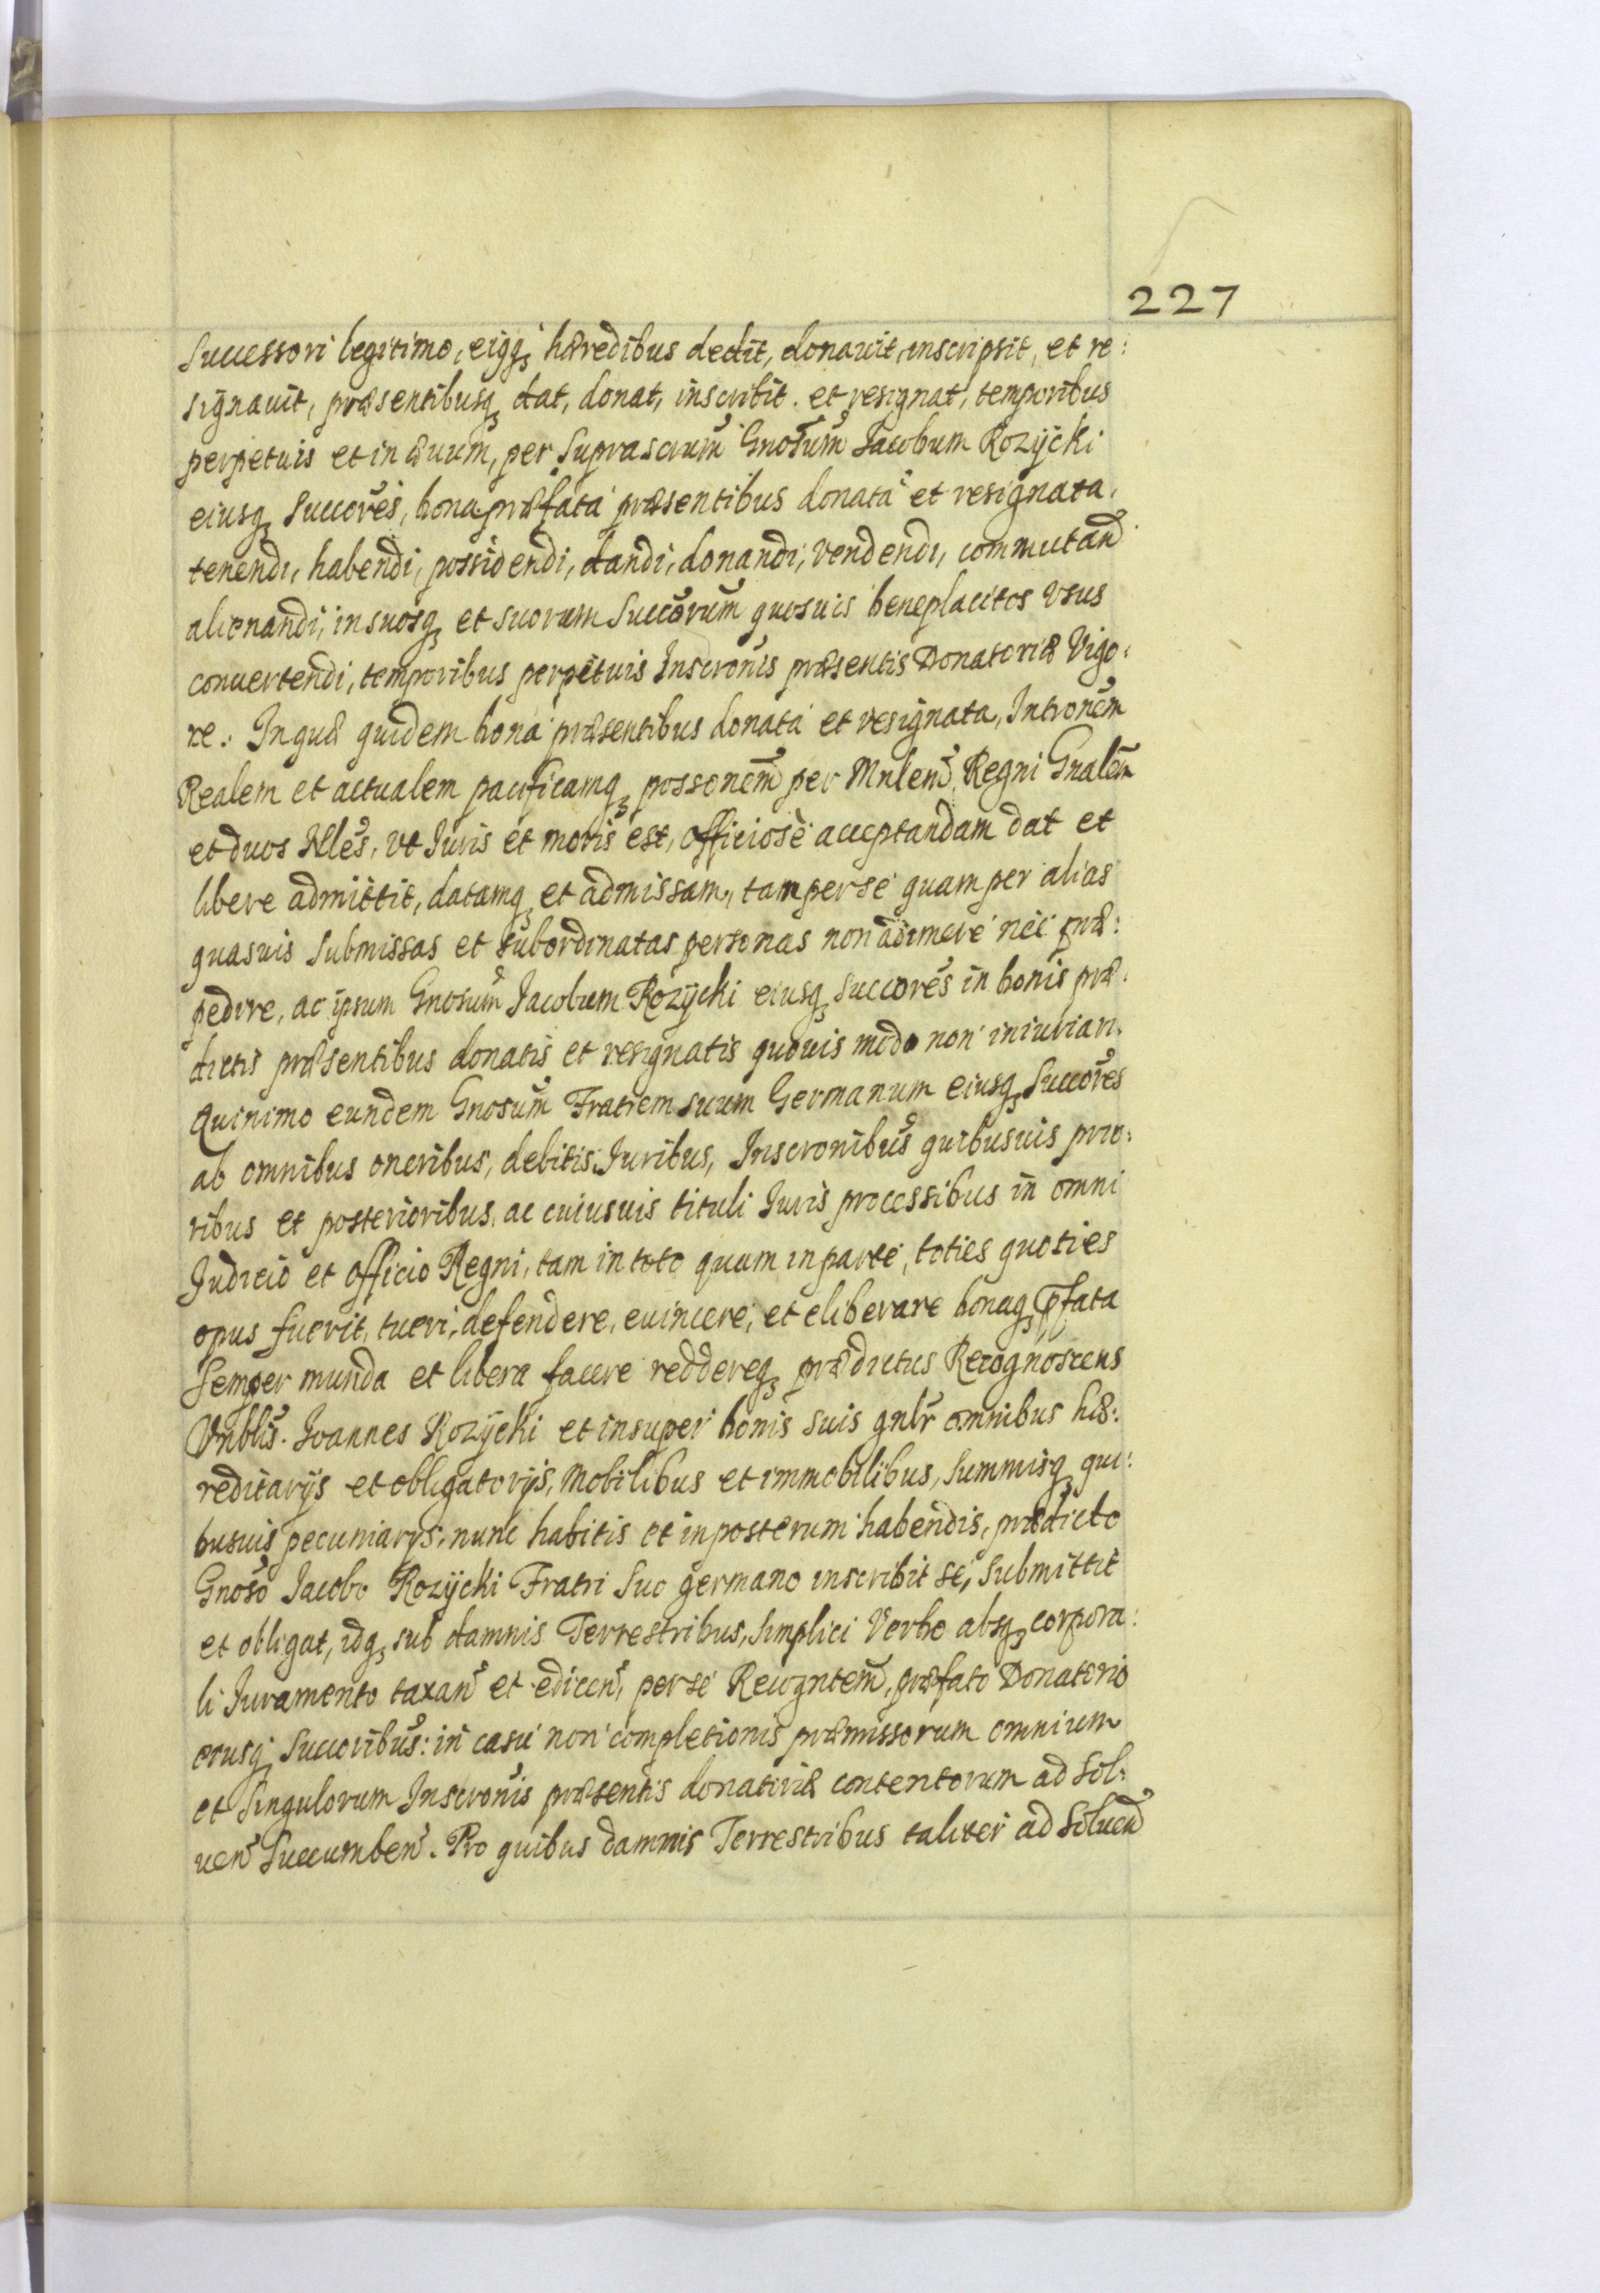 227
Successori legitimo, eiqq haeredibus dedit, donauit, inscripsit, et re:
signauit, praesentibusq dat, donat, inscribit. et resignat, temporibus
perpetuis et in aeuum, per suprascrum Gnosum Jacobum Rozycki
eiusq succores, bona praefata praesentibus donata et resignata.
tenendi, habendi, possidendi, dandi, donandi, vendendi, commutand
alienandi, in suosq et suorum succorum quosuis beneplacitos vsus
conuertendi, temporibus perpetuis Inscronis praesentis Donatoriae Vigo:
re. In quae quidem bona praesentibus donata et resignata, Intronem
Realem et actualem pacificamq possonem per Mnlem Regni Gnalem
et duos Nles, vt Juris et moris est, officiose acceptandam dat et
libere admittit, datamq et admissam, tam per se quam per alias
quasuis submissas et subordinatas personas non adimere nec prae:
pedire, ac ipsum Gnosum Jacobum Rozycki eiusq succores in bonis prae:
dictis praesentibus donatis et resignatis quouis modo non iniuriari.
Quinimo eundem Gnosum Fratrem suum Germanum eiusq Succores
ab omnibus oneribus, debitis, Juribus, Inscronibus quibusuis prio:
ribus et posterioribus, ac cuiusuis tituli Juris processibus in omni
Judicio et officio Regni, tam in toto quam in parte, toties quoties
opus fuerit, tueri, defendere, euincere, et eliberare bonaq pfata
semper munda et libera facere reddereq praedictus Recognoscens
Vnblis. Joannes Rozycki et insuper bonis suis gnlr omnibus hae:
reditarijs et obligatorijs, Mobilibus et immobilibus, summisq qui:
busuis pecuniarijs, nunc habitis et in posterum habendis, praedicto
Gnoso Jacobo Rozycki Fratri suo germano inscribit se, submittit
et obligat, idq sub damnis Terrestribus, simplici Verbo absq corpora:
li Juramento taxan et edicen, per se Recogntem, praefato Donatorio
eiusq Succoribus: in casu non completionis praemissorum omnium
et singulorum Inscronis praesentis donatoriae contentorum ad sol:
uen succumben. Pro quibus damnis Terrestribus taliter ad soluend